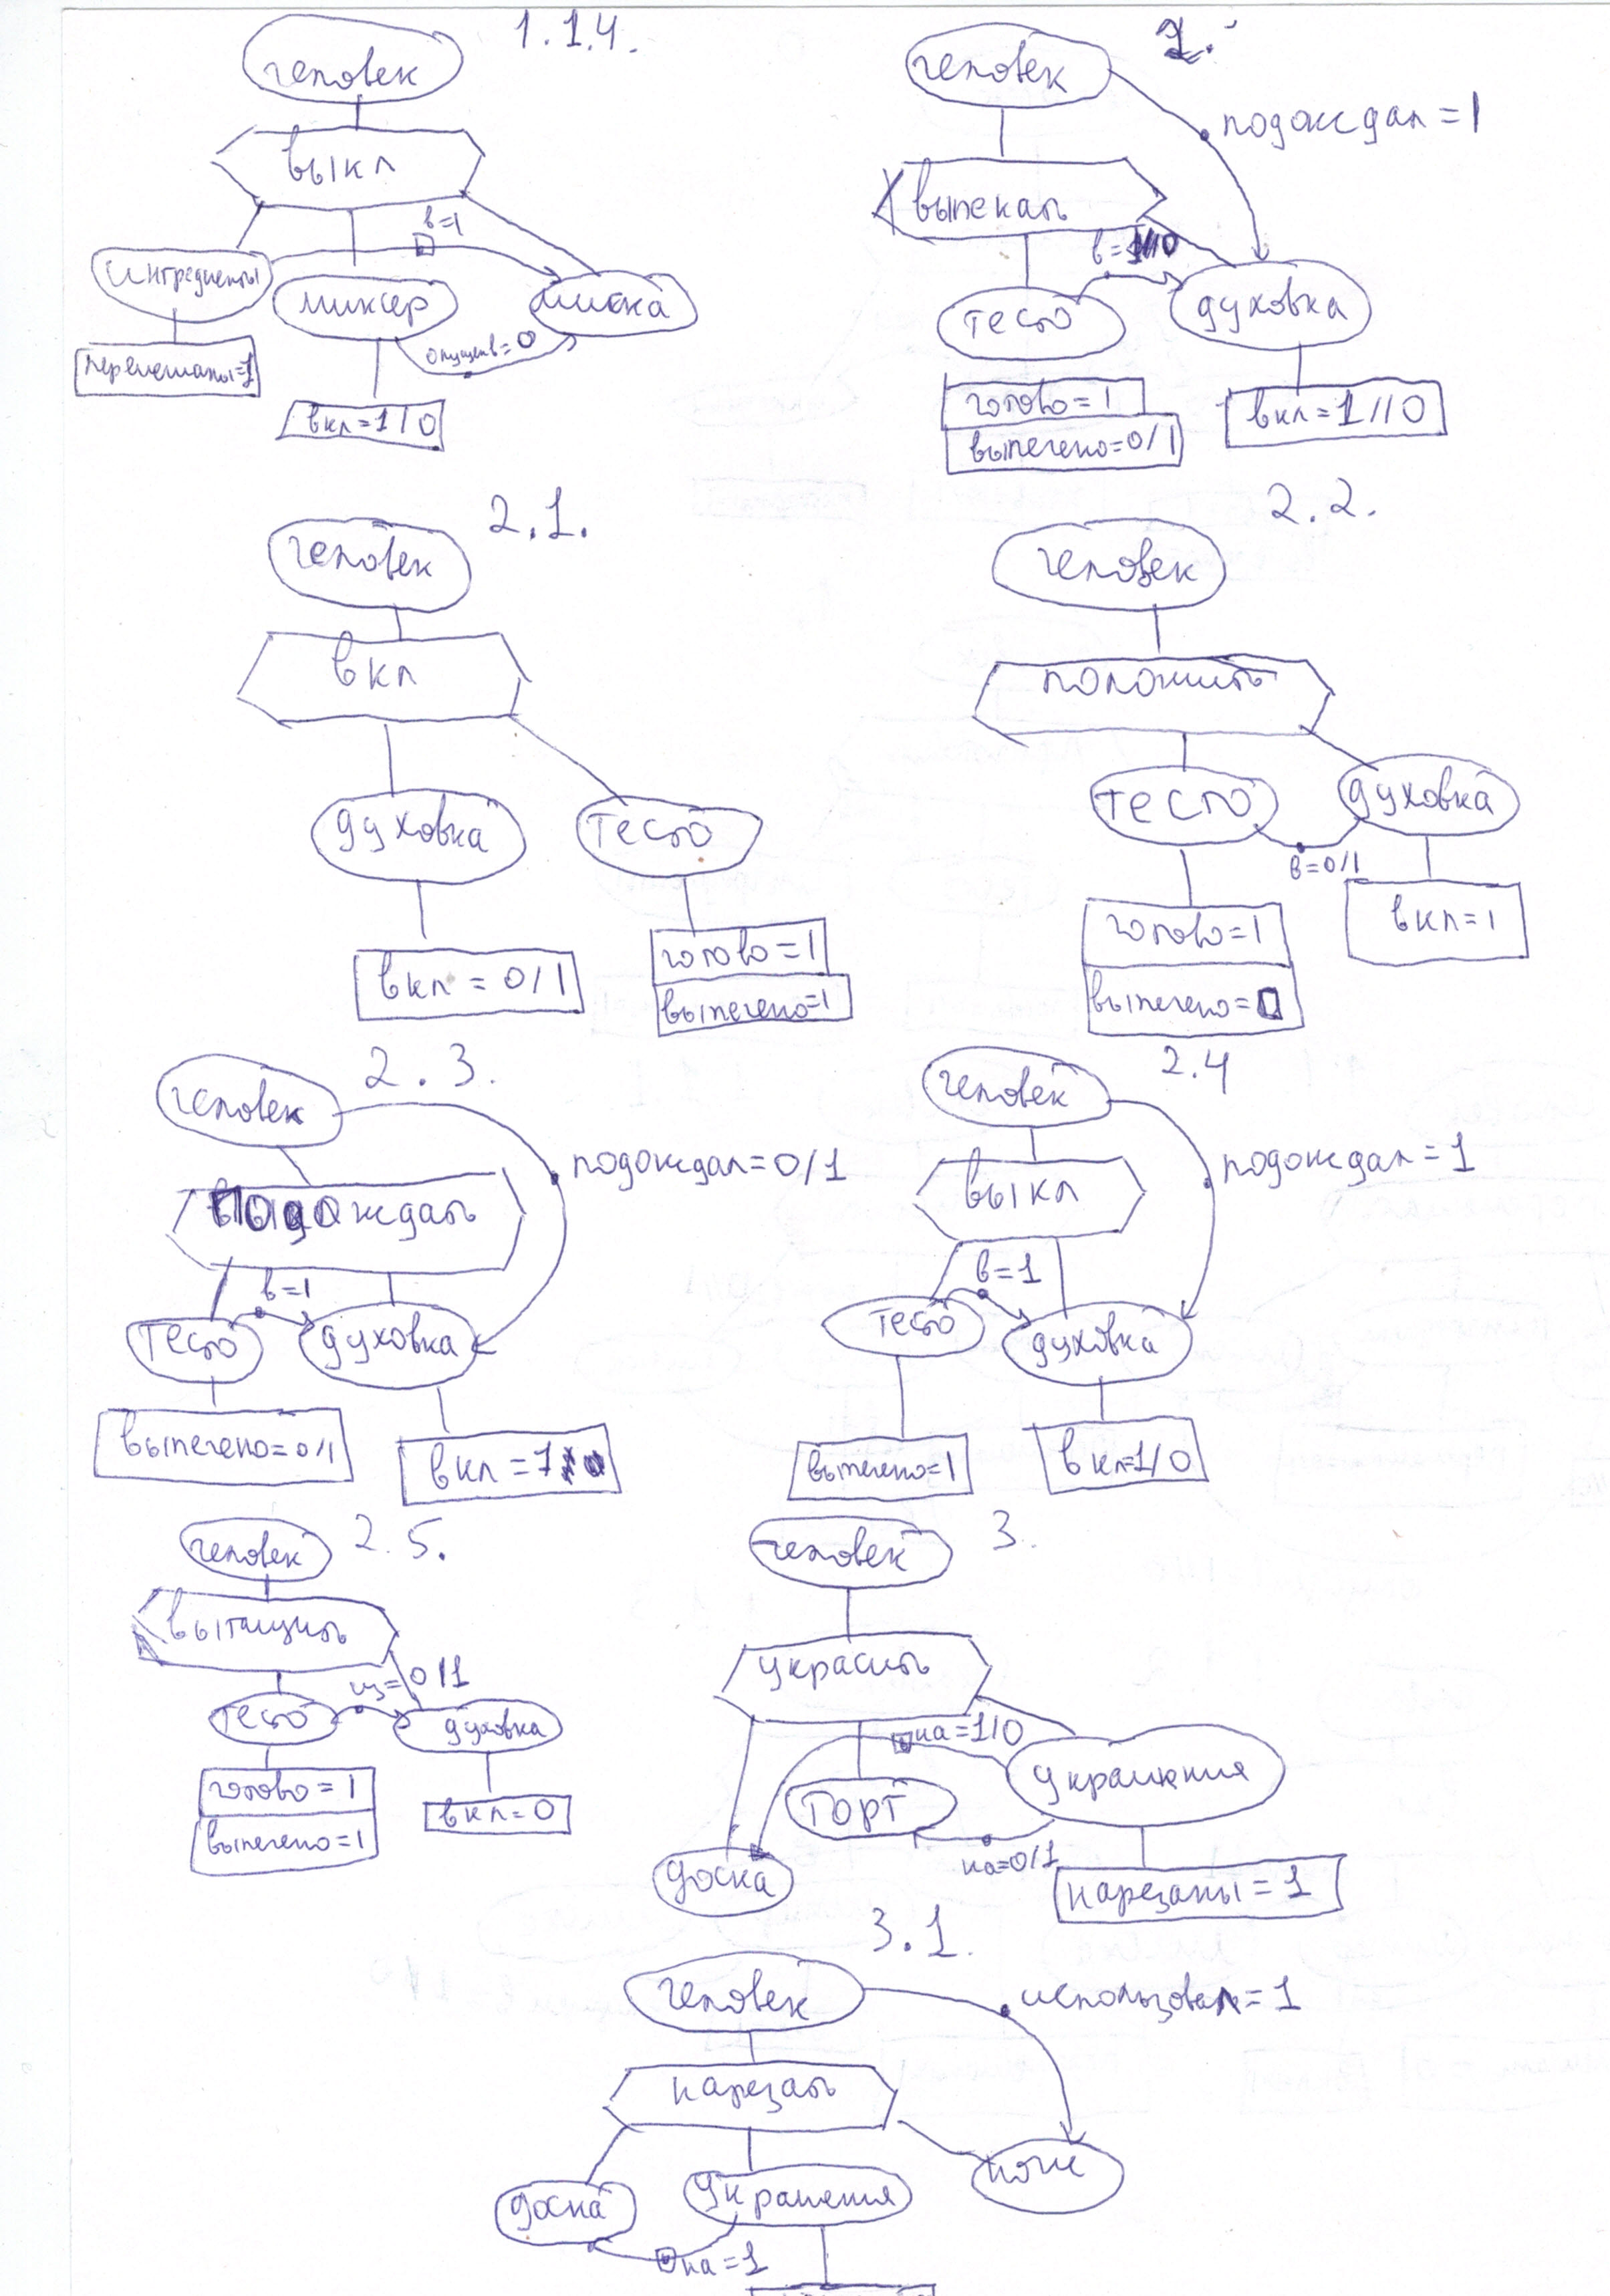 1.1.4.
человек
выкл
в=1
ингредиенты
миксер
миска
опущен в=0
перемешаны=1
вкл=1/0
2.
человек
подождал=1
выпекать
тесто
духовка
готово=1
выпечено=0/1
вкл=1//0
2.1.
человек
вкл
духовка
тесто
вкл=0/1
готово=1
выпечено=1
2.2.
человек
положить
тесто
духовка
в=0/1
готово=1
выпечено=0
вкл=1
2.3.
человек
подождал=0/1
подождать
в=1
тесто
духовка
выпечено=0/1
вкл=1
2.4
человек
подождал=1
выкл
в=1
тесто
духовка
выпечено=1
вкл=1/0
2.5.
человек
вытащить
из=0/1
тесто
духовка
готово=1
выпечено=1
вкл=0
3.
человек
украсить
на=1/0
украшения
торт
на=0/1
доска
нарезаны=1
3.1.
человек
использовал=1
нарезать
нож
доска
украшения
на=1